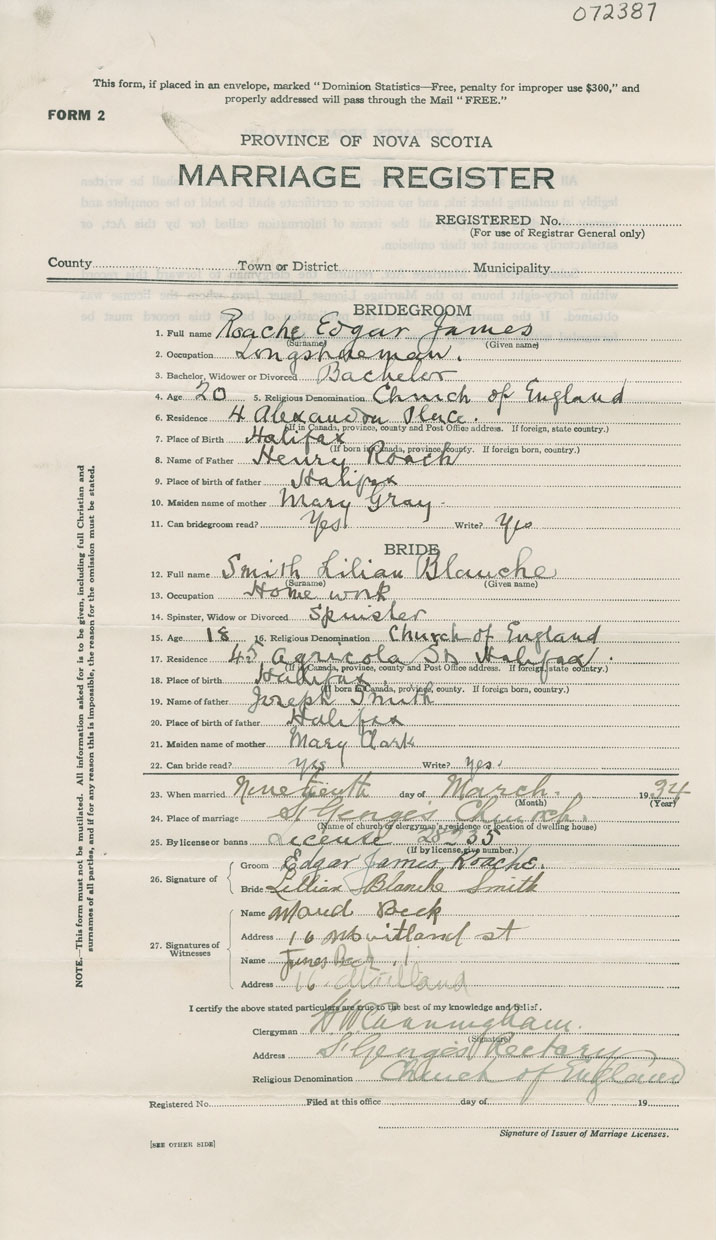 072387
This form, if placed in an envelope, marked "Dominion Statistics—Free, penalty for improper use $300," and
properly addressed will pass through the Mail "FREE."
FORM 2
PROVINCE OF NOVA SCOTIA
MARRIAGE REGISTER
REGISTERED No.
(For use of Registrar General only)
County Town or District Municipality
BRIDEGROOM
1. Full name Roache Edgar James
(Surname) (Given name)
2. Occupation Longshoreman.
3. Bachelor, Widower or Divorced Bachelor
4. Age 20 5. Religious Denomination Church of England
6. Residence 4 Alexandra Place.
(If in Canada, province, county and Post Office address. If foreign, state country.)
7. Place of Birth Halifax
(If born in Canada, province, county. If foreign born, country.)
8. Name of Father Henry Roach
9. Place of birth of father Halifax
10. Maiden name of mother Mary Gray
11. Can bridegroom read? Yes Write? Yes
BRIDE
12. Full name Smith Lilian Blanche
(Surname) (Given name)
13. Occupation Home work
14. Spinster, Widow or Divorced Spinster
15. Age 18 16. Religious Denomination Church of England
17. Residence 45 Agricola St. Halifax.
(If in Canada, province, county and Post Office address. If foreign, state country.)
18. Place of birth Halifax.
(If born in Canada, province, county. If foreign born, country.)
19. Name of father Joseph Smith
20. Place of birth of father Halifax
21. Maiden name of mother Mary Clark
22. Can bride read? yes Write? yes.
23. When married Nineteenth day of March. 1934
(Month) (Year)
24. Place of marriage St George's Church.
(Name of church or clergyman's residence or location of dwelling house)
25. By license or banns License
(If by license, give number.)
26. Signature of
Groom Edgar James Roache.
Bride Lillian Blanche Smith
27. Signatures of
Witnesses
Name Maud Beck
Address 16 Maitland st
Name James Beck
Address 16 Maitland
I certify the above stated particulars are true to the best of my knowledge and belief.
Clergyman H W Cunningham.
(Signature)
Address St George's Rectory
Religious Denomination Church of England
Registered No. Filed at this office day of 19
Signature of Issuer of Marriage Licenses.
[SEE OTHER SIDE]
NOTE.—This form must not be mutilated. All information asked for is to be given, including full Christian and
surnames of all parties, and if for any reason this is impossible, the reason for the omission must be stated.